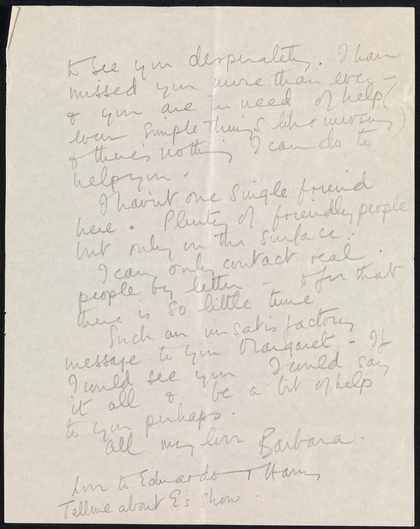 to see you desperately. I have
missed you more than ever –
& you are in need of help (
even simple things like nursing)
& there's nothing I can do to
help you.
I havint one single friend
here. Plenty of friendly people
but only on the surface.
I can only contact real
people by letter – & for that
there is so little time
Such an unsatisfactory
message to you Margaret – If
I would see you I would say
it all & be a bit of help
to you perhaps.
All my love Barbara.
love to Eduardo + Harry
Tell me about E's show